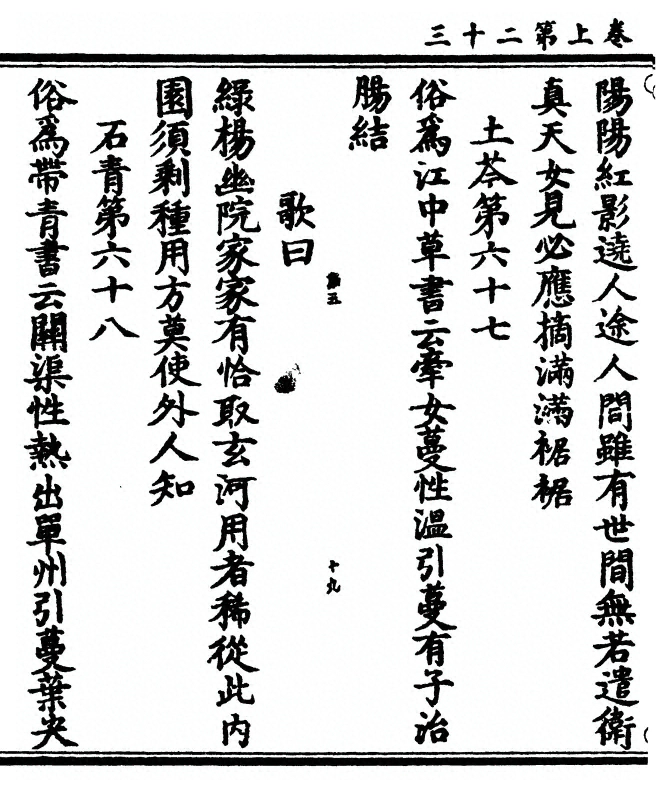 卷上第二十三
陽陽紅影遶人途人間雖有世間無若遣衛
真天女見必應摘滿滿裾裾
土苓第六十七
俗為江中草書云牽女蔓性溫引蔓有子治
腸結
第五
十九
歌曰
綠楊幽院家家有恰取玄河用者稀從此內
園須剩種用方莫使外人知
石青第六十八
俗為帶青書云關渠性熱出單州引蔓葉尖